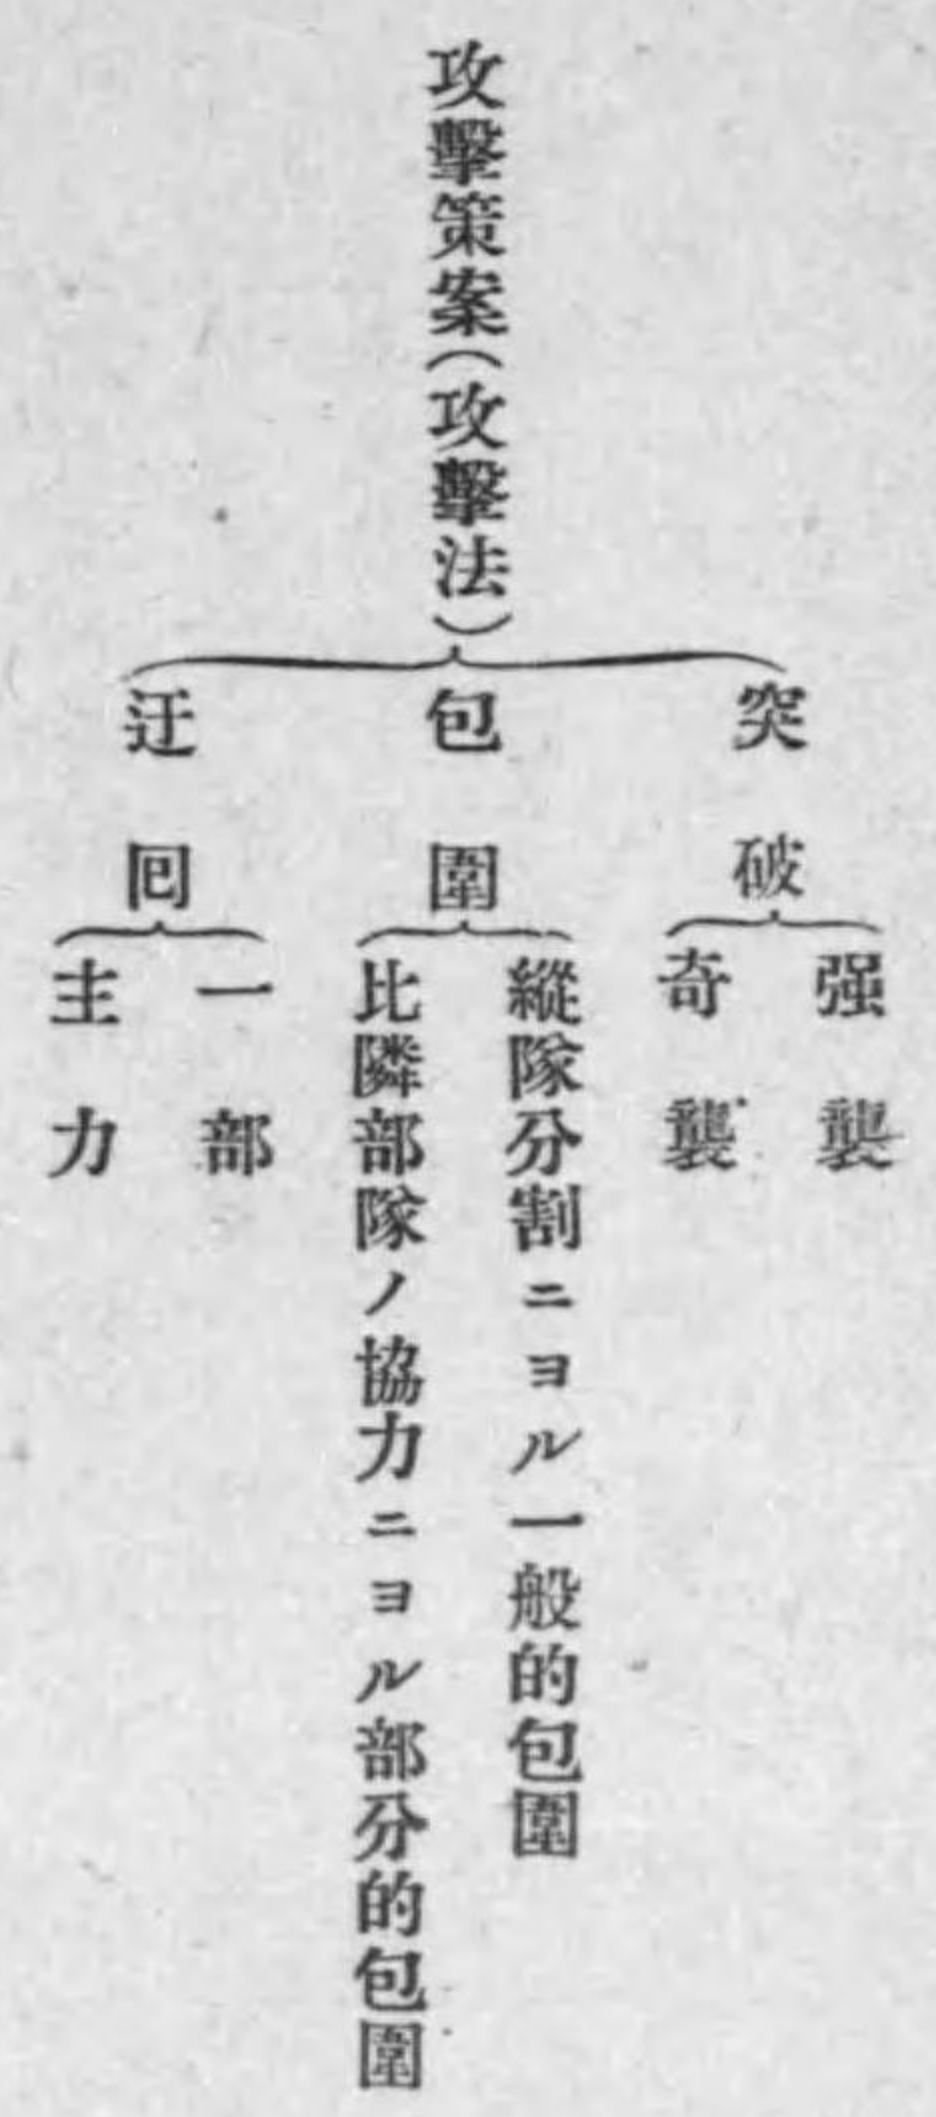 攻擊策案(攻擊法)
突破
强襲
奇襲
包圍
縱隊分割ニヨル一般的包圍
比隣部隊ノ協力ニヨル部分的包圍
迂囘
一部
主力